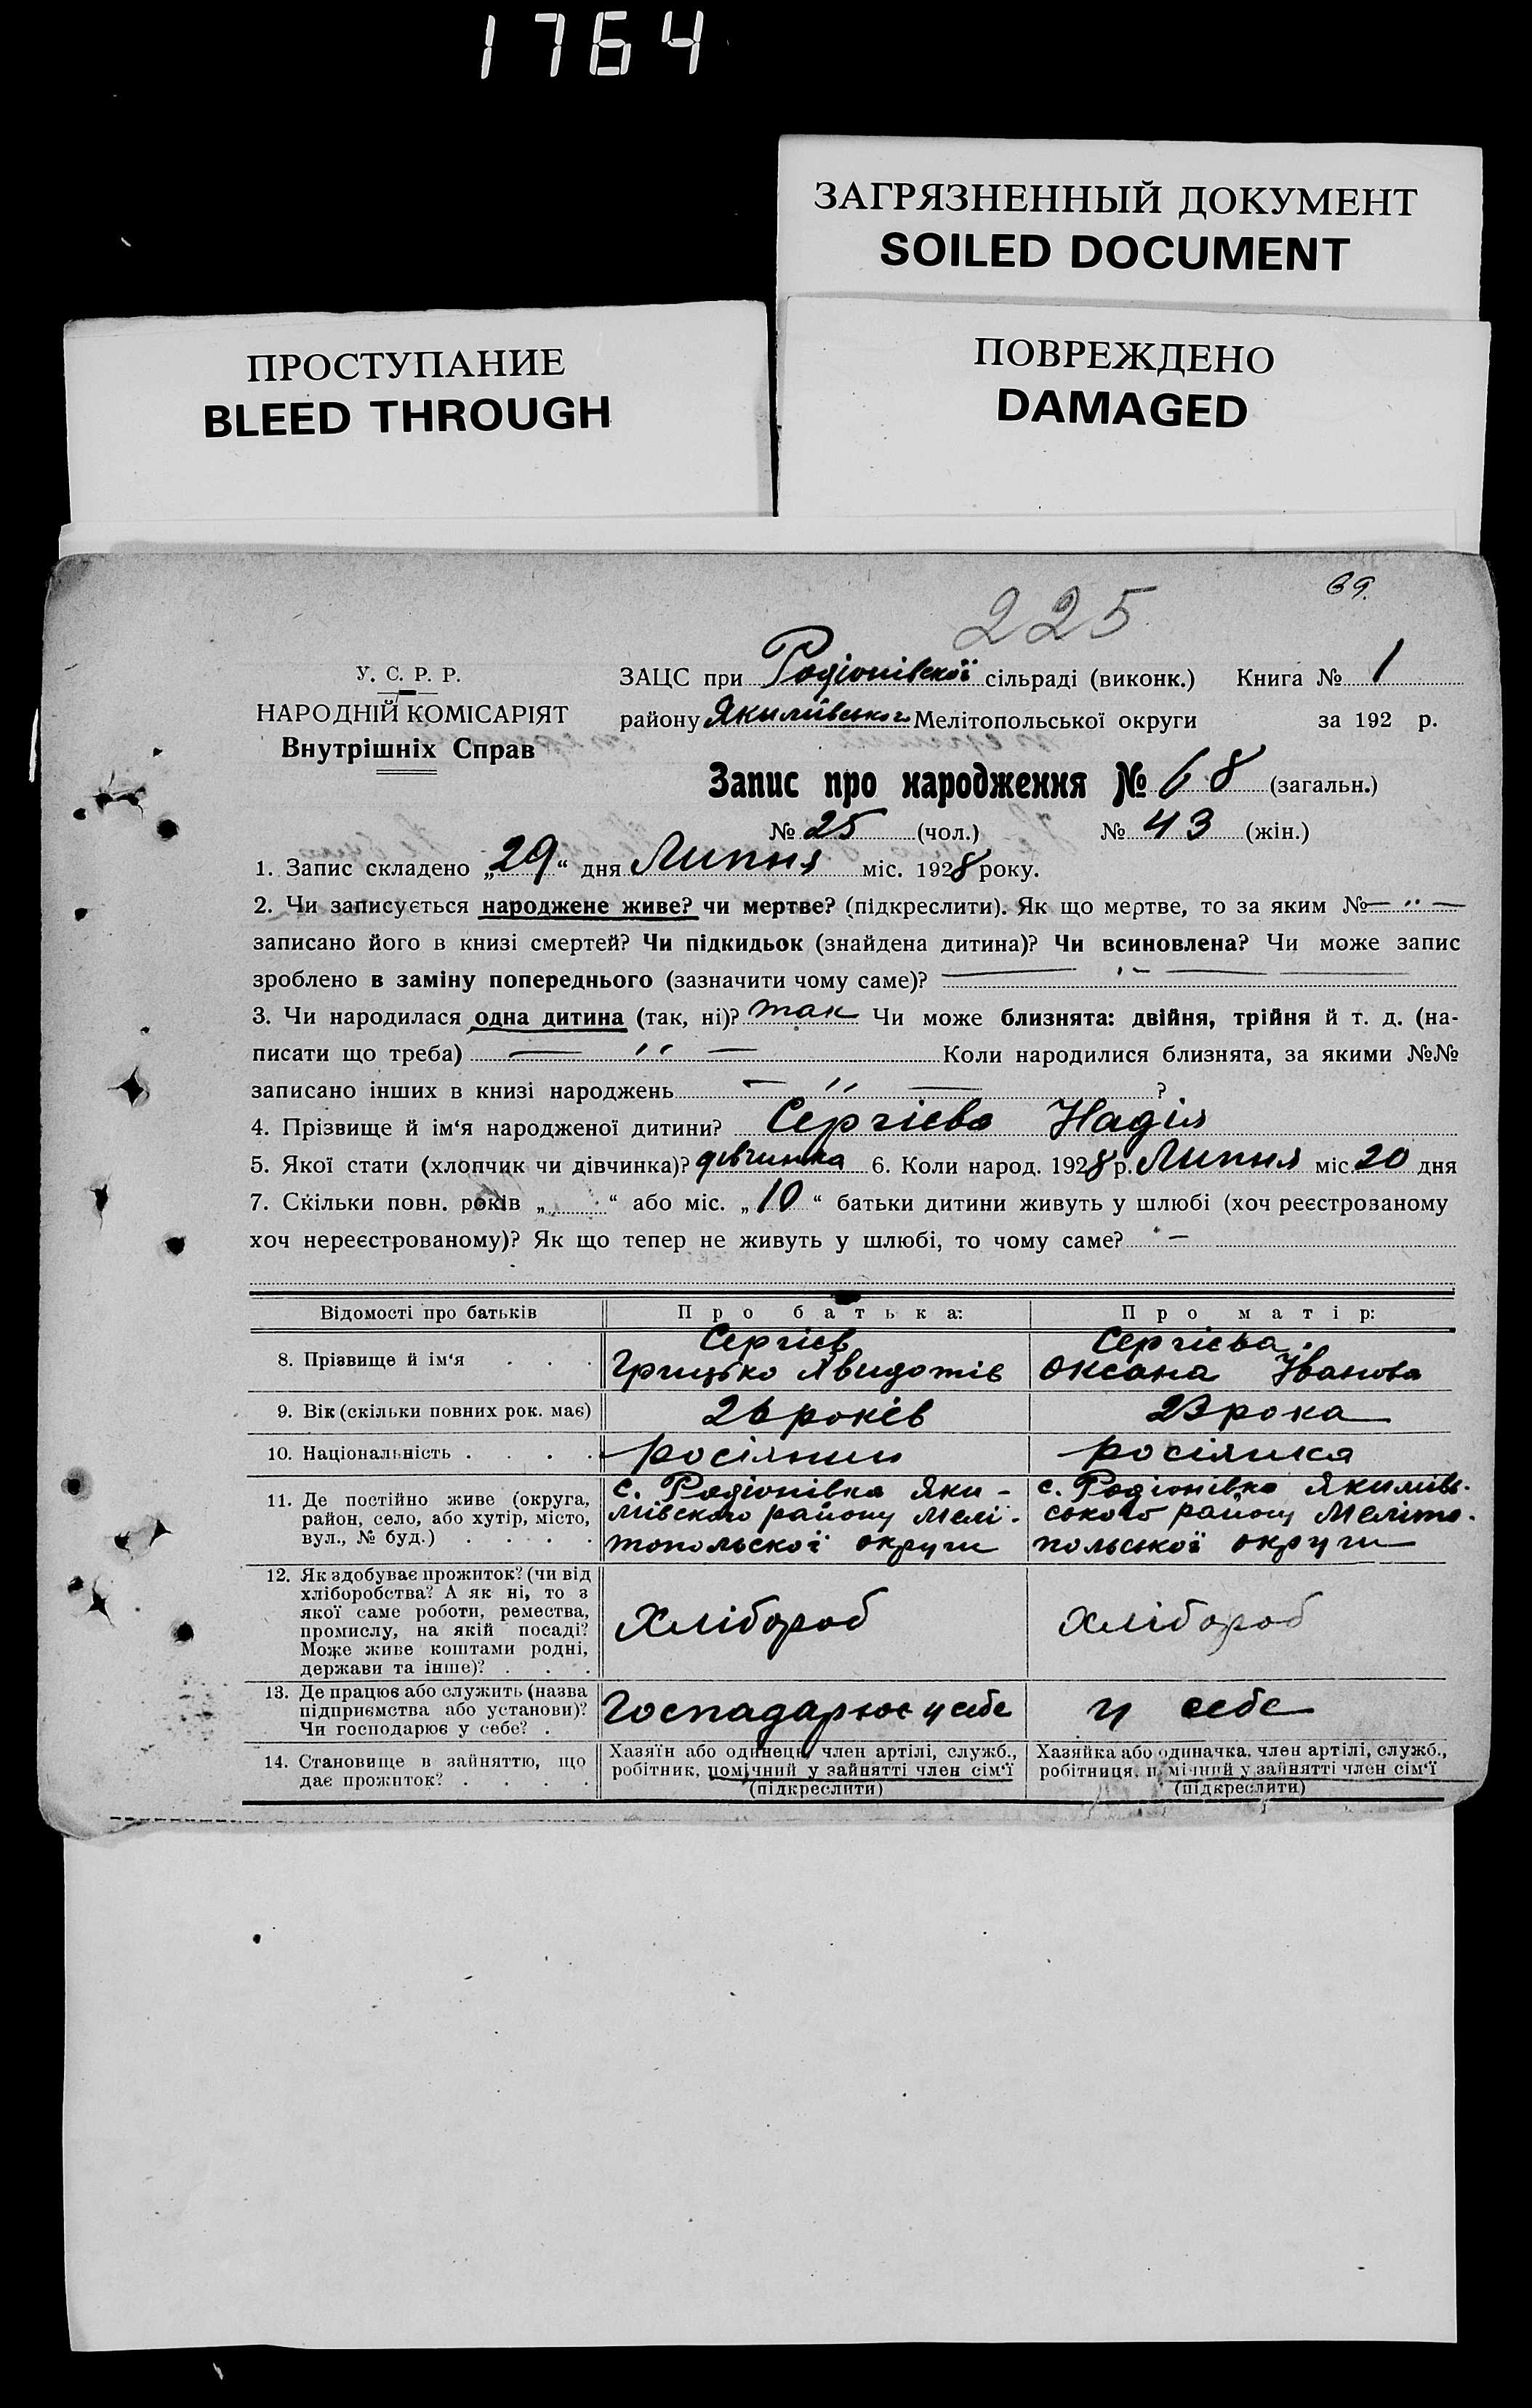 1764
ЗАГРЯЗНЕННЫЙ ДОКУМЕНТ
SOILED DOCUMENT
ПРОСТУПАНИЕ
BLEED THROUGH
ПОВРЕЖДЕНО
DAMAGED
69.
225
У. С. Р. Р.
НАРОДНІЙ КОМІСАРІЯТ
Внутрішніх Справ
ЗАЦС при Родіонівскої сільраді (виконк.) Книга № 1
району Якимівського Мелітопольської округи за 192 р.
Запис про народження № 68 (загальн.)
№ 25 (чол.) № 43 (жін.)
1. Запис складено „29“ дня Липня міс. 1928 року.
2. Чи записується народжене живе? чи мертве? (підкреслити). Як що мертве, то за яким № — " —
записано його в книзі смертей? Чи підкидьок (знайдена дитина)? Чи всиновлена? Чи може запис
зроблено в заміну попереднього (зазначити чому саме)? — " —
3. Чи народилася одна дитина (так, ні)? так Чи може близнята: двійня, трійня й т. д. (на-
писати що треба) — " — Коли народилися близнята, за якими №№
записано інших в книзі народжень — " — ?
4. Прізвище й ім‘я народженої дитини? Сергієва Надія
5. Якої стати (хлопчик чи дівчинка)? дівчинка 6. Коли народ. 1928 р. Липня міс. 20 дня
7. Скільки повн. років „ “ або міс. „10“ батьки дитини живуть у шлюбі (хоч реєстрованому
хоч нереєстрованому)? Як що тепер не живуть у шлюбі, то чому саме? —
Відомості про батьків
Про батька:
Про матір:
8. Прізвище й ім‘я . . .
Сергієв
Грицько
Сергієва
Оксана Іванова
9. Вік (скільки повних рок. має)
26 років
23 рока
10. Національність . . . .
росіянин
росіянка
11. Де постійно живе (округа,
район, село, або хутір, місто,
вул., № буд.) . . . .
с. Родіонівка Яки-
мівского району Мелі-
топольскої округи
с. Родіонівка Якимів-
ського району Меліто-
польської округи
12. Як здобуває прожиток? (чи від
хліборобства? А як ні, то з
якої саме роботи, ремества,
промислу, на якій посаді?
Може живе коштами родні,
держави та інше)? . . .
Хлібороб
Хлібороб
13. Де працює або служить (назва
підприємства або установи)?
Чи господарює у себе? .
Господарює у себе
у себе
14. Становище в зайняттю, що
дає прожиток? . . . .
Хазяїн або одинець, член артілі, служб.,
робітник, помічний у зайнятті член сім‘ї
(підкреслити)
Хазяйка або одиначка, член артілі, служб.,
робітниця, помічний у зайнятті член сім‘ї
(підкреслити)